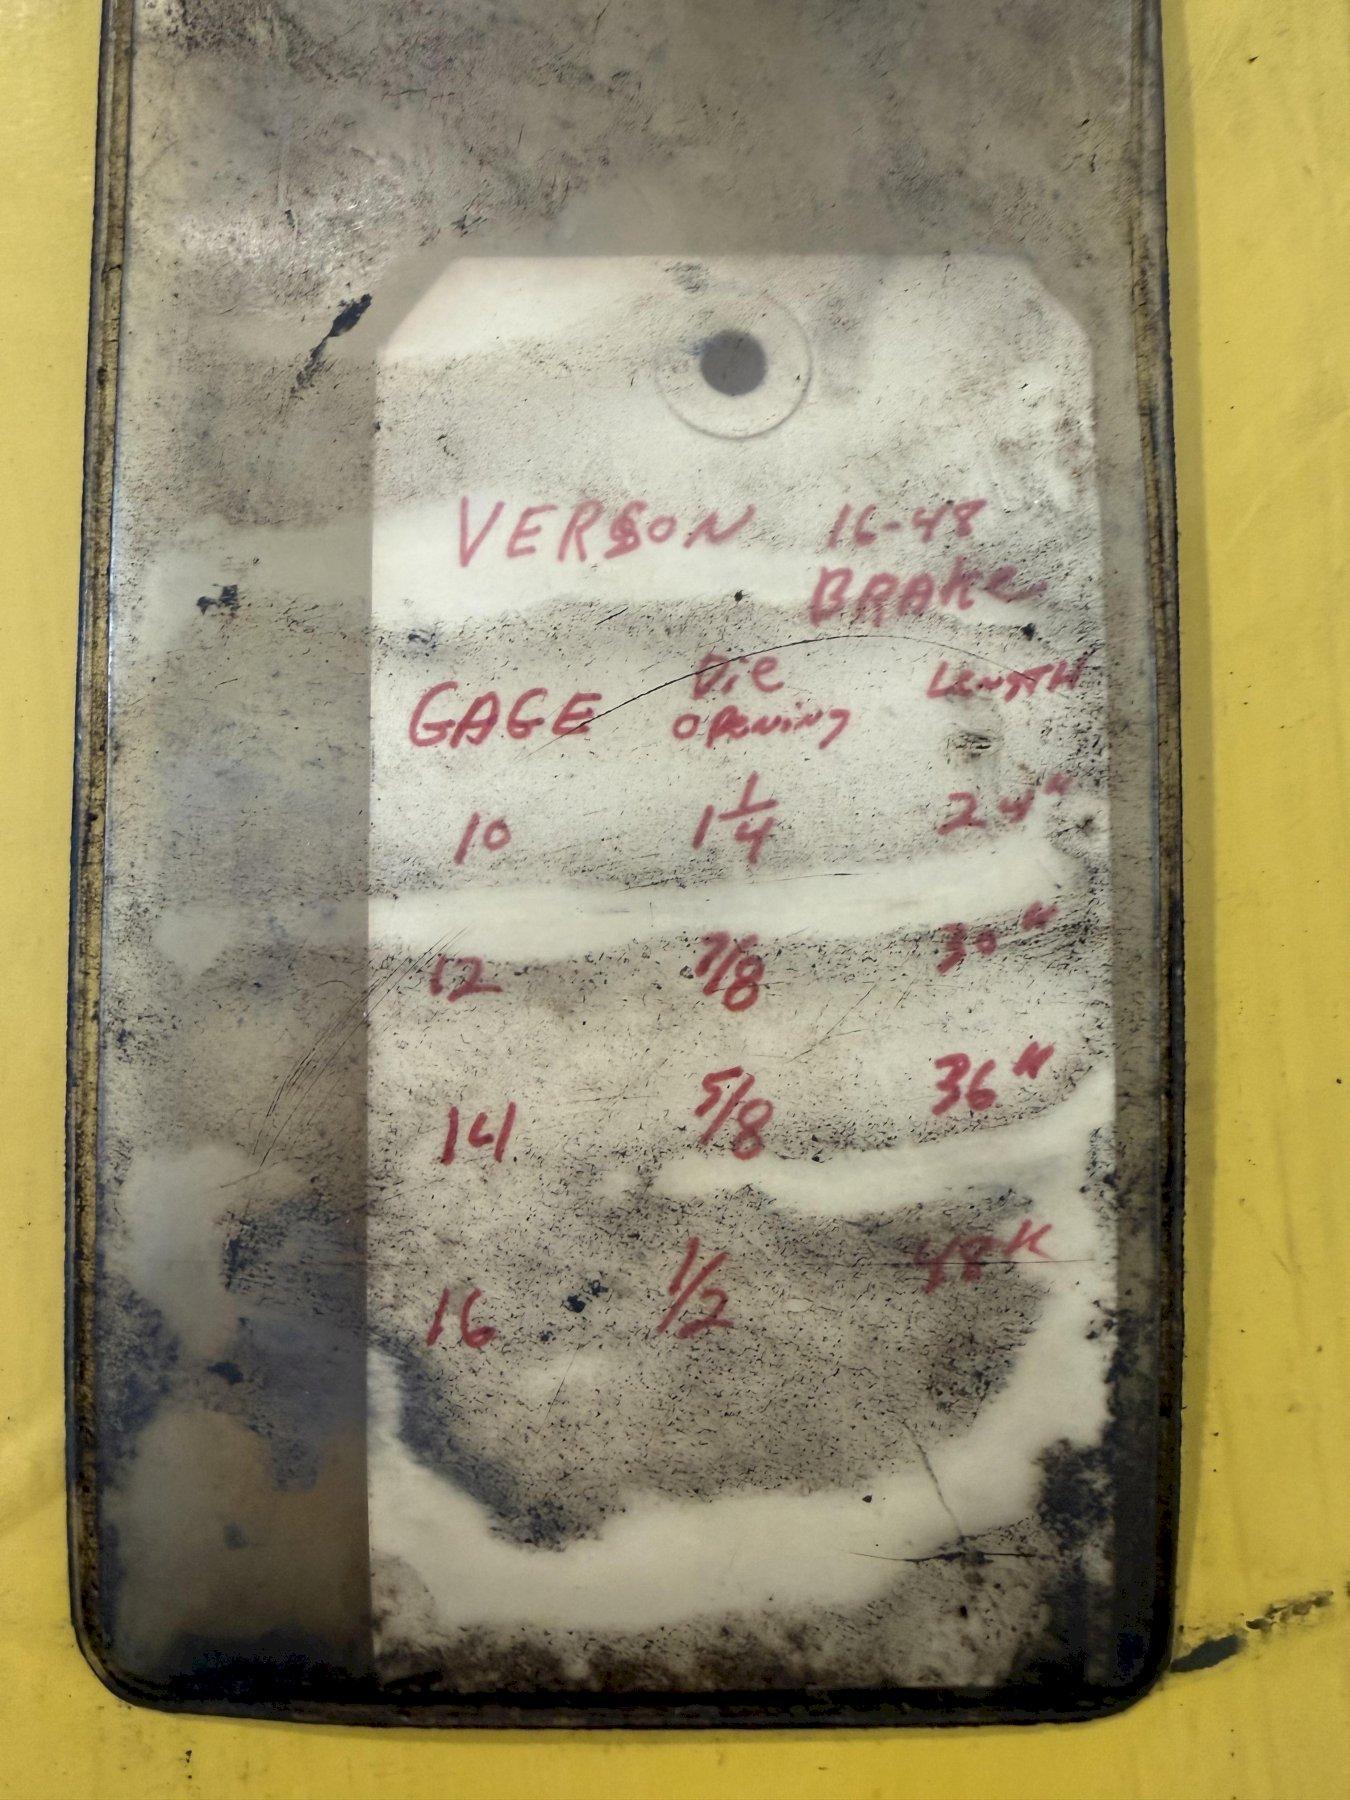 VERSON 16-48
BRAKE
GAGE Die opening LENGTH
10 1 1/4 24"
12 7/8 30"
14 5/8 36"
16 1/2 48"